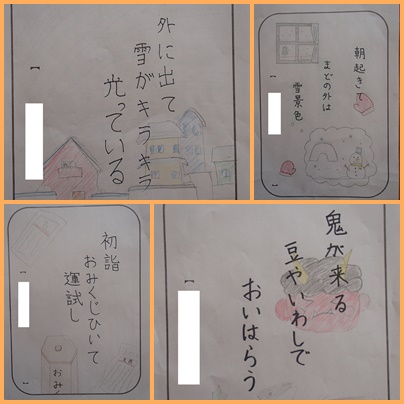 外に出て
雪がキラキラ
光っている
朝起きて
まどの外は
雪景色
初詣
おみくじひいて
運試し
おみ
鬼が来る
豆やいわしで
おいはらう